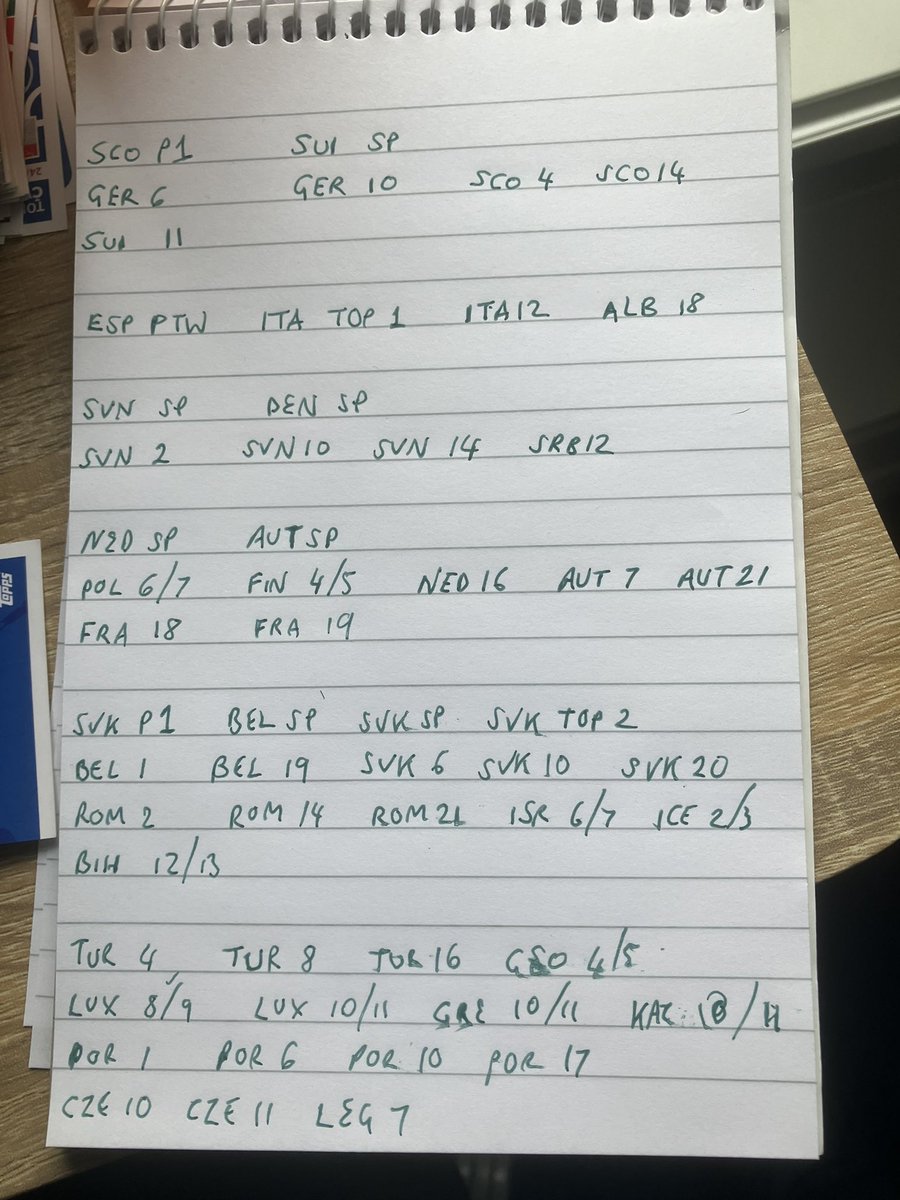 SCO P1 SUI SP
GER 6 GER 10 SCO 4 SCO 14
SUI 11
ESP PTW ITA TOP 1 ITA 12 ALB 18
SVN SP DEN SP
SVN 2 SVN 10 SVN 14 SRB 12
NED SP AUT SP
POL 6/7 FIN 4/5 NED 16 AUT 7 AUT 21
FRA 18 FRA 19
SVK P1 BEL SP SVK SP SVK TOP 2
BEL 1 BEL 19 SVK 6 SVK 10 SVK 20
ROM 2 ROM 14 ROM 21 ISR 6/7 ICE 2/3
BIH 12/13
TUR 4 TUR 8 TUR 16 GEO 4/5
LUX 8/9 LUX 10/11 GRE 10/11 KAZ
POR 1 POR 6 POR 10 POR 17
CZE 10 CZE 11 LEG 7
TOPPS